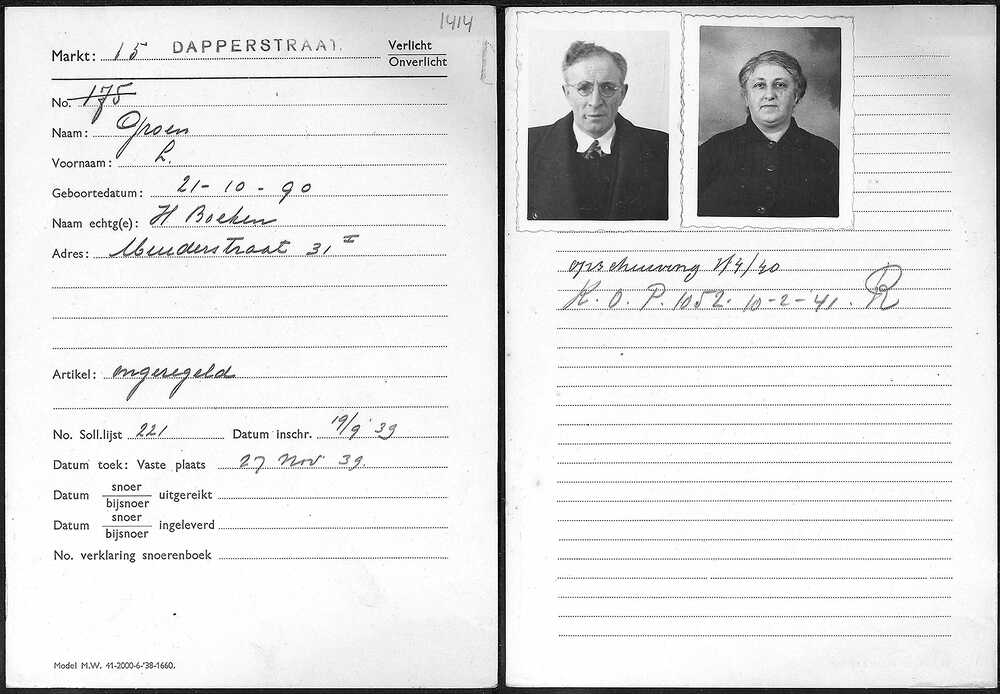 1414
Markt: 15 DAPPERSTRAAT. Verlicht
Onverlicht
No. 175
Naam: Groen
Voornaam: L.
Geboortedatum: 21-10-90
Naam echtg(e): H Boeken
Adres: 31 I
Artikel: ongeregeld
No. Soll.lijst 221 Datum inschr. 19/9 '39
Datum toek: Vaste plaats 27 Nov 39.
Datum snoer uitgereikt
bijsnoer
Datum snoer ingeleverd
bijsnoer
No. verklaring snoerenboek
Model M.W. 41-2000-6-'38-1660.
opschuiving
K. O. P. 1052. 10-2-41. R